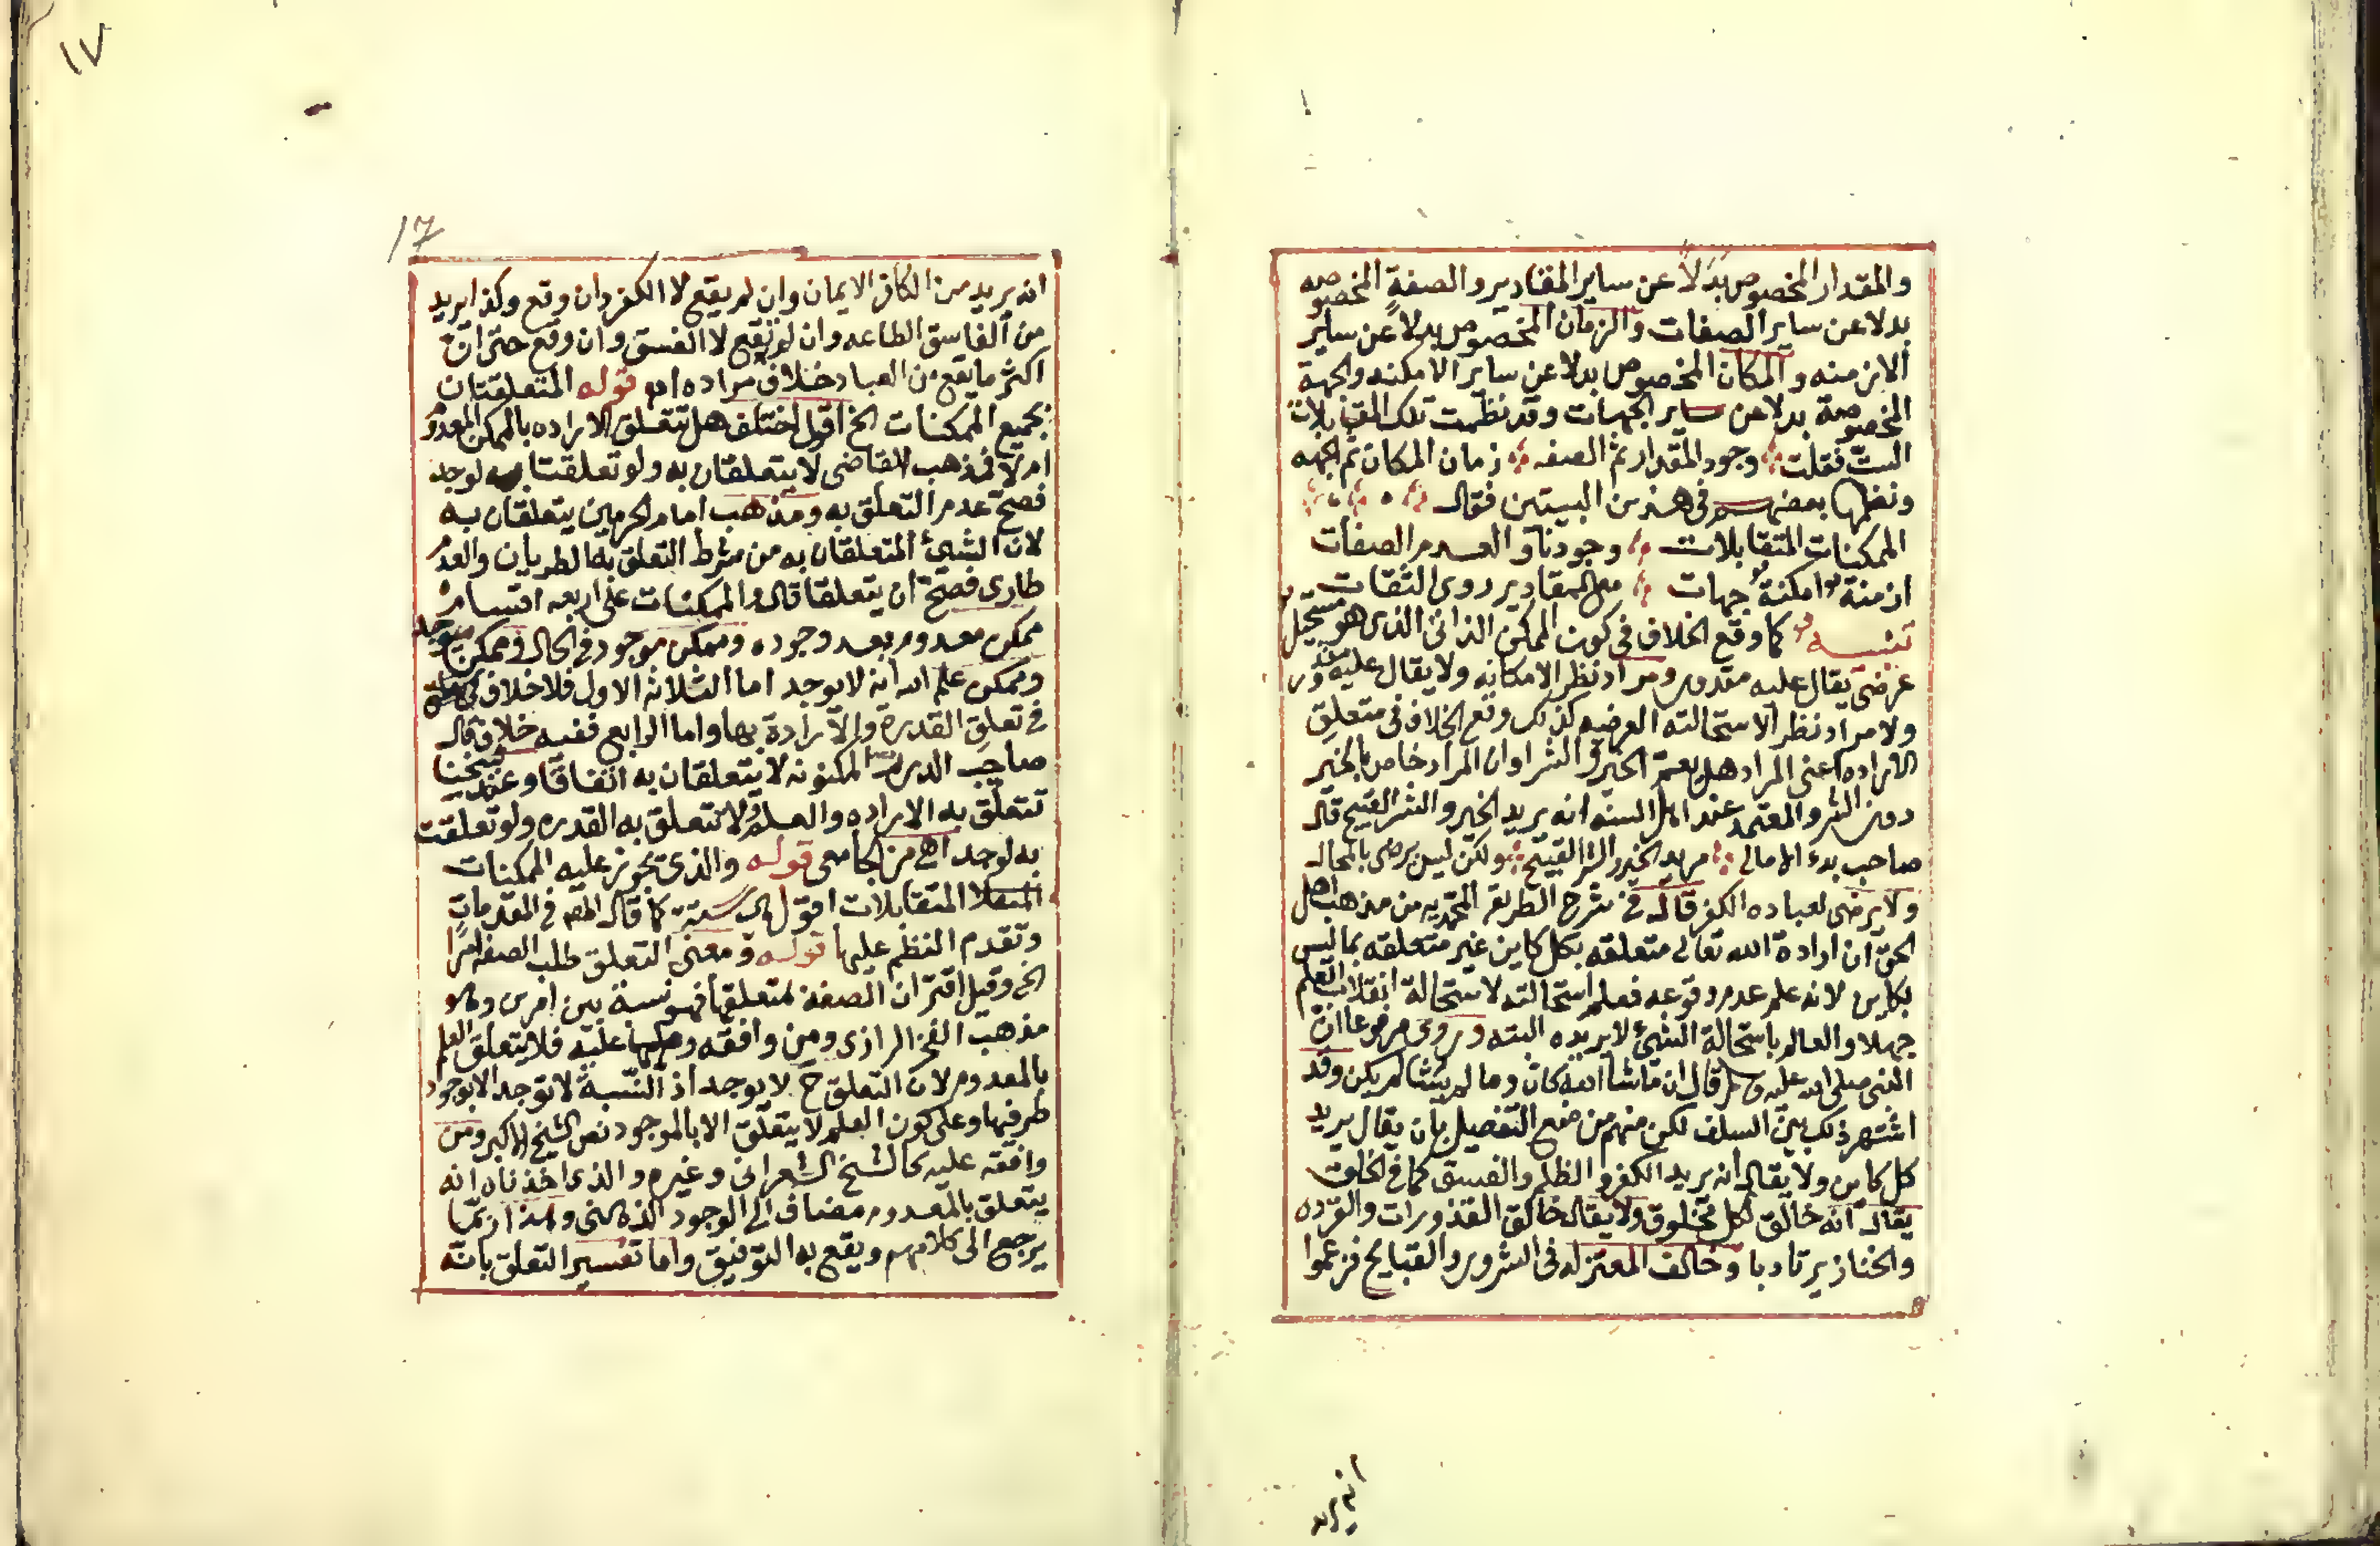 والمقدار المخصوص بدلا عن ساير المقادير والصفة المخصوصه
بدلا عن ساير الصفات والزمان المخصوص بدلا عن ساير
الازمنه والمكان المخصوص بدلا عن ساير الامكنه والجهة
المخصوصة بدلا عن ساير الجهات وقد نظمت تلك المتقابلات
الست فقلت وجود المقدار ثم الصفه زمان المكان ثم الجهه
ونظمها بعضهم في هذين البيتين فقال
الممكنات المتقابلات وجودنا والعدم الصفات
ازمنة امكنة جهات مع المقادير روى الثقات
تنبيه كما وقع الخلاف في كون الممكن الذاتي الذى هو مستحيل
عرضي يقال عليه مقدور ومراد نظرا لامكانه ولا يقال عليه مقدور
ولا مراد نظرا لاستحالته العرضيه كذلك وقع الخلاف في متعلق
الاراده اعني المراد هل يعم الخير والشر او ان المراد خاص بالخير
دون الشر والمعتمد عند اهل السنه انه يريد الخير والشر القبيح قال
صاحب بدء الامالي مريد الخير والشر القبيح ولكن ليس يرضى بالمحال
ولا يرضى لعباده الكفر قال في شرح الطريقه المحمديه من مذهب اهل
الحق ان ارادة الله تعالى متعلقه بكل كاين غير متعلقه بما ليس
بكاين لانه علم عدم وقوعه فعلم استحالته لاستحالة انقلاب العلم
جهلا والعالم باستحالة الشئ لا يريده البته وروى مرفوعا ان
النبى صلى الله عليه وسلم قال ان ما شا الله كان وما لم يشا لم يكن وقد
اشتهر ذلك بين السلف لكن منهم من منع التفصيل بان يقال يريد
كل كاين ولا يقال انه يريد الكفر والظلم والفسق كما في الخلق
يقال انه خالق لكل مخلوق ولا يقال خالق القذورات والقرده
والخنازير تادبا وخالف المعتزله في الشرور والقبايح فزعموا
انه يريد
١٧
17
انه يريد من الكافر الايمان وان لم يقع لا الكفر وان وقع وكذا يريد
من الفاسق الطاعه وان لم تقع لا الفسق وان وقع حتى ان
اكثر ما يقع من العباد خلاف مراده اه قوله المتعلقتان
بجميع الممكنات الخ اقول اختلف هل تتعلق الاراده بالممكن المعدوم
ام لا فمذهب القاضى لا يتعلقان به ولو تعلقتا به لوجد
فصح عدم التعلق به ومذهب امام الحرمين يتعلقان به
لان الشئ المتعلقان به من شرط التعلق به الطريان والعدم
طارى فصح ان يتعلقا قال والممكنات على اربعه اقسام
ممكن معدوم بعد وجوده وممكن موجود في الحال وممكن سيوجد
وممكن علم الله انه لا يوجد اما الثلاثه الاول فلا خلاف
في تعلق القدرة والارادة بها واما الرابع ففيه خلاف قال
صاحب الدرة المكنونه لا يتعلقان به اتفاقا وعند شيخنا
تتعلق به الاراده والعلم ولا تتعلق به القدره ولو تعلقت
به لوجد اهى من الجامعى قوله والذى تجوز عليه الممكنات
المتقابلات اقول هى ستة كما قال المص في المقدمات
وتقدم النظم عليها قوله ومعنى التعلق طلب الصفه امرا
الخ وقيل اقتران الصفه بمتعلقها فهو نسبة بين امرين وهو
مذهب الفخر الرازى ومن وافقه عليه فلا يتعلق العلم
بالمعدوم لان التعلق ح لا يوجد اذ النسبة لا توجد الا بوجود
طرفيها وعلى كون العلم لا يتعلق الا بالموجود نص الشيخ الاكبر ومن
وافقه عليه كالشيخ الشعرانى وغيره والذى اخذناه انه
يتعلق بالمعدوم مضاف الى الوجود الذهنى وهذا ربما
يرجع الى كلامهم ويقع به التوفيق واما تفسير التعلق بانه